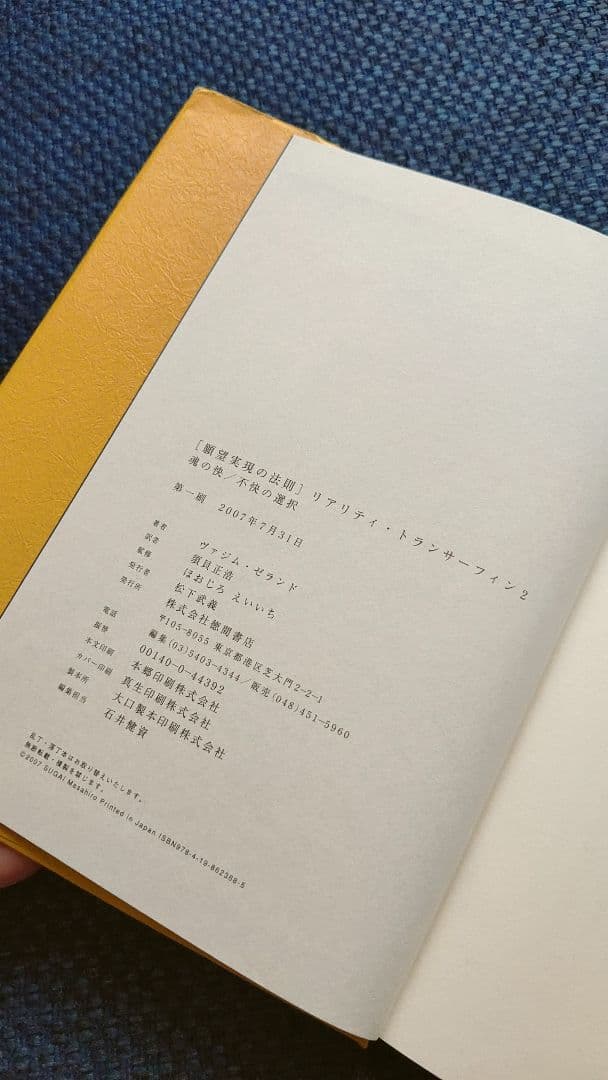 [願望実現の法則] リアリティ・トランサーフィン2
魂の快/不快の選択
第一刷 2007年7月31日
著者 ヴァジム・ゼランド
訳者 須貝正浩
監修 ほおじろ えいいち
発行者 松下武義
発行所 株式会社徳間書店
〒105-8055 東京都港区芝大門2-2-1
電話 編集(03)5403-4344/販売(048)451-5960
振替 00140-0-44392
本文印刷 本郷印刷株式会社
カバー印刷 真生印刷株式会社
製本所 大口製本印刷株式会社
編集担当 石井健資
乱丁・落丁本はお取り替えいたします。
無断転載・複製を禁じます。
©2007 SUGAI Masahiro Printed in Japan ISBN978-4-19-862388-5